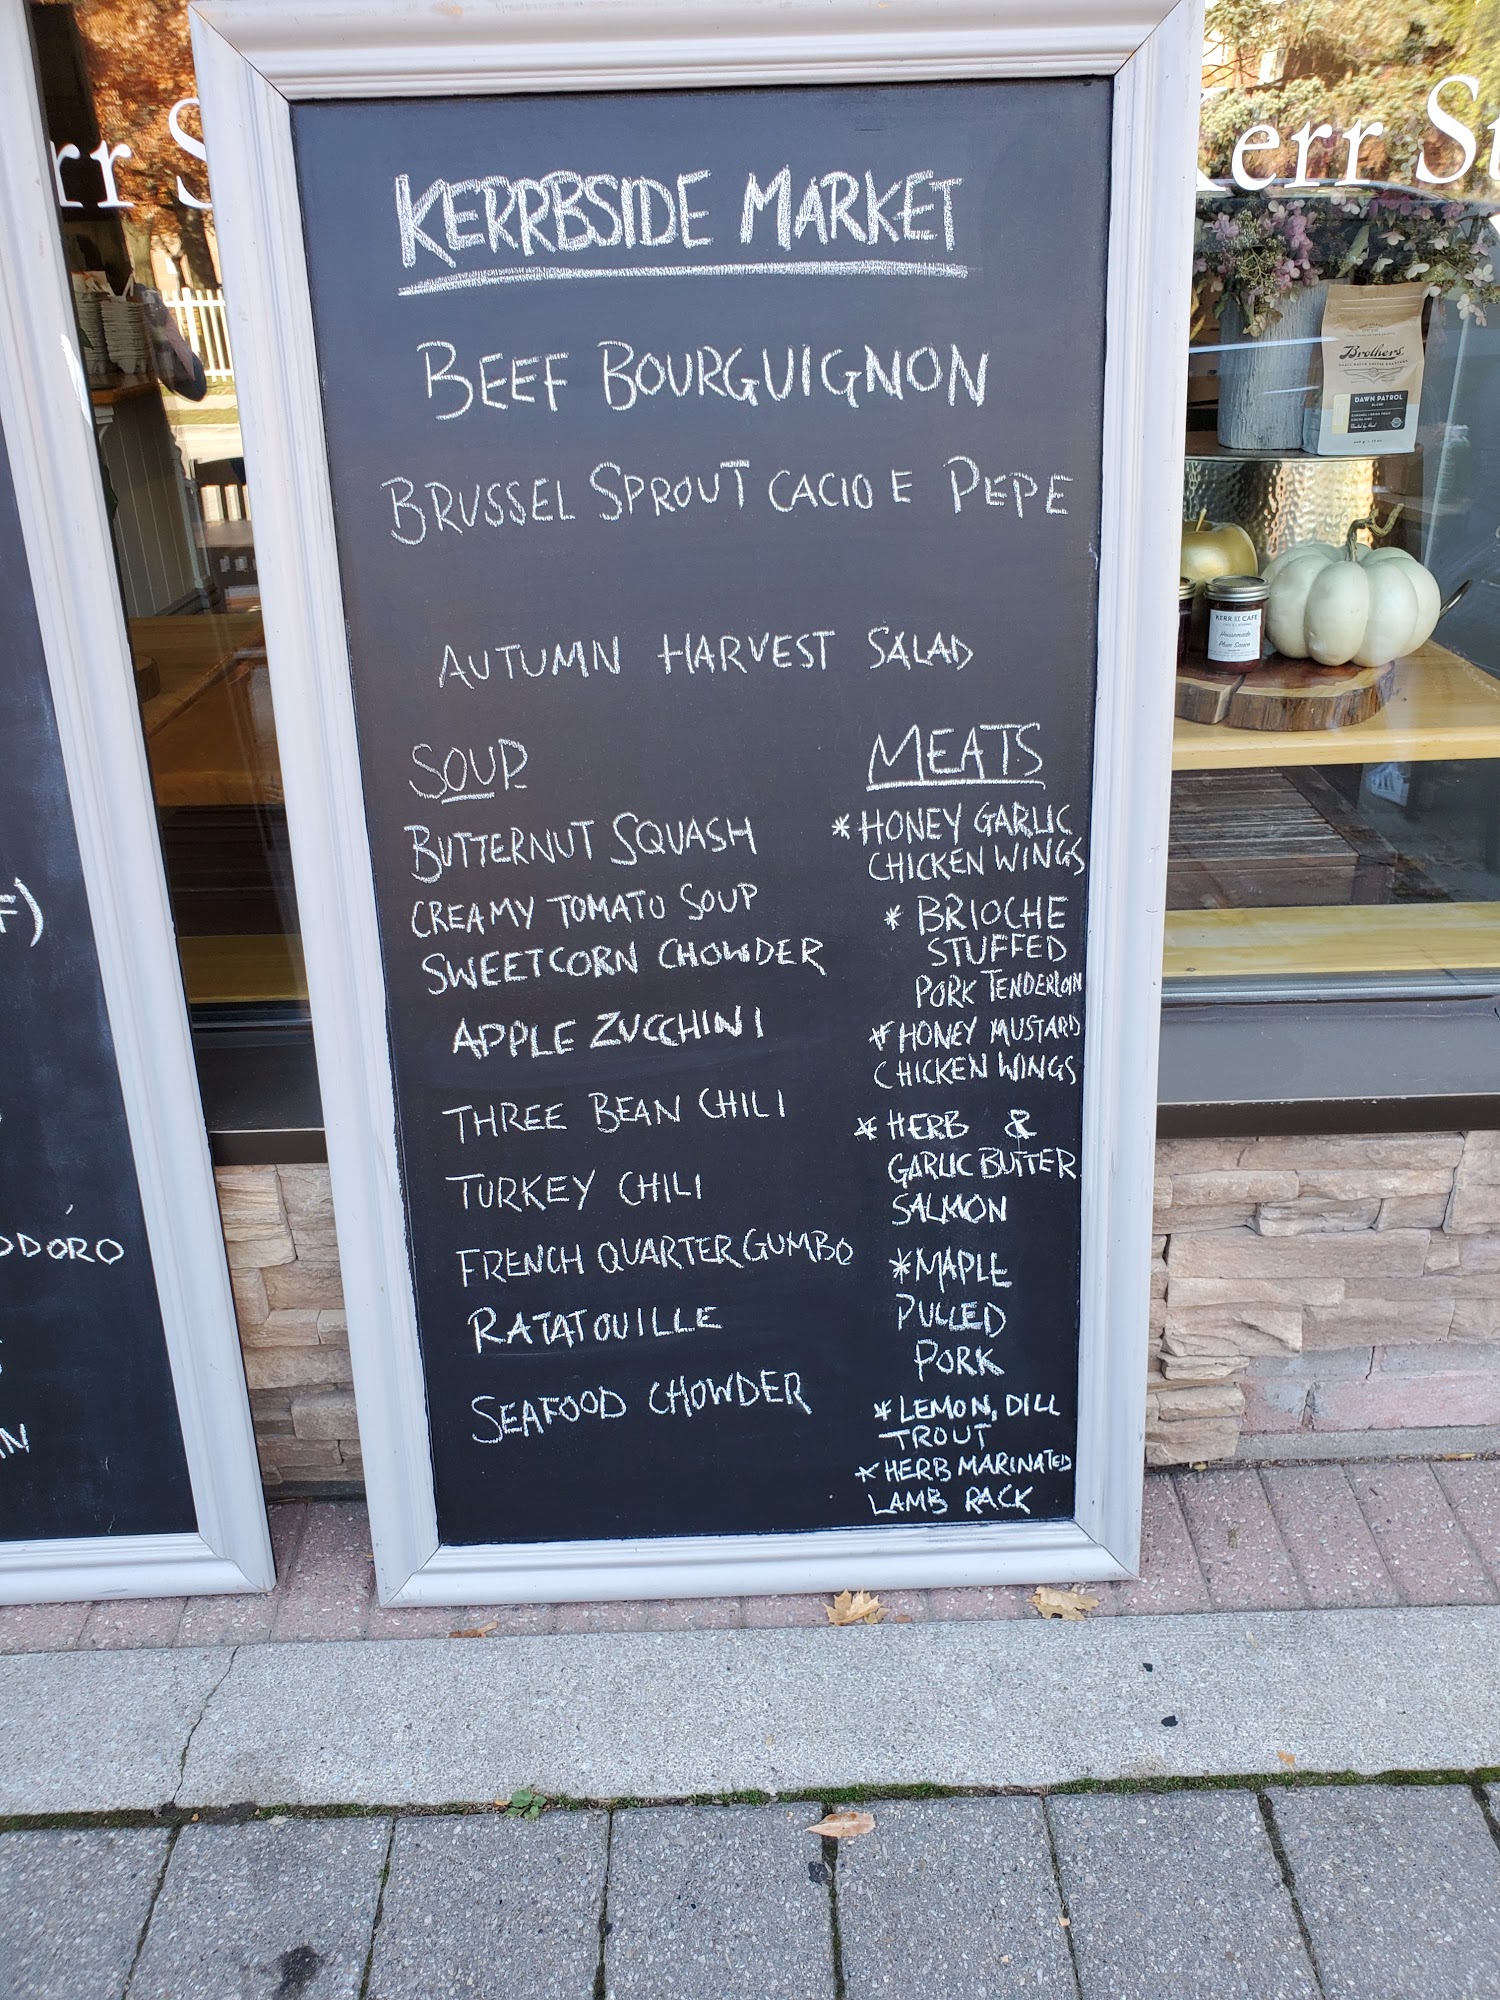 KERRBSIDE MARKET
BEEF BOURGUIGNON
BRUSSEL SPROUT CACIO E PEPE
AUTUMN HARVEST SALAD
SOUP
BUTTERNUT SQUASH
CREAMY TOMATO SOUP
SWEETCORN CHOWDER
APPLE ZUCCHINI
THREE BEAN CHILI
TURKEY CHILI
FRENCH QUARTER GUMBO
RATATOUILLE
SEAFOOD CHOWDER
MEATS
*HONEY GARLIC
CHICKEN WINGS
* BRIOCHE
STUFFED
PORK TENDERLOIN
* HONEY MUSTARD
CHICKEN WINGS
* HERB &
GARLIC BUTTER
SALMON
*MAPLE
PULLED
PORK
* LEMON, DILL
TROUT
* HERB MARINATED
LAMB RACK
Kerr St
Brothers
DAWN PATROL
KERR ST. CAFE
Homemade
Plum Sauce
rr S
F)
ODORO
AN